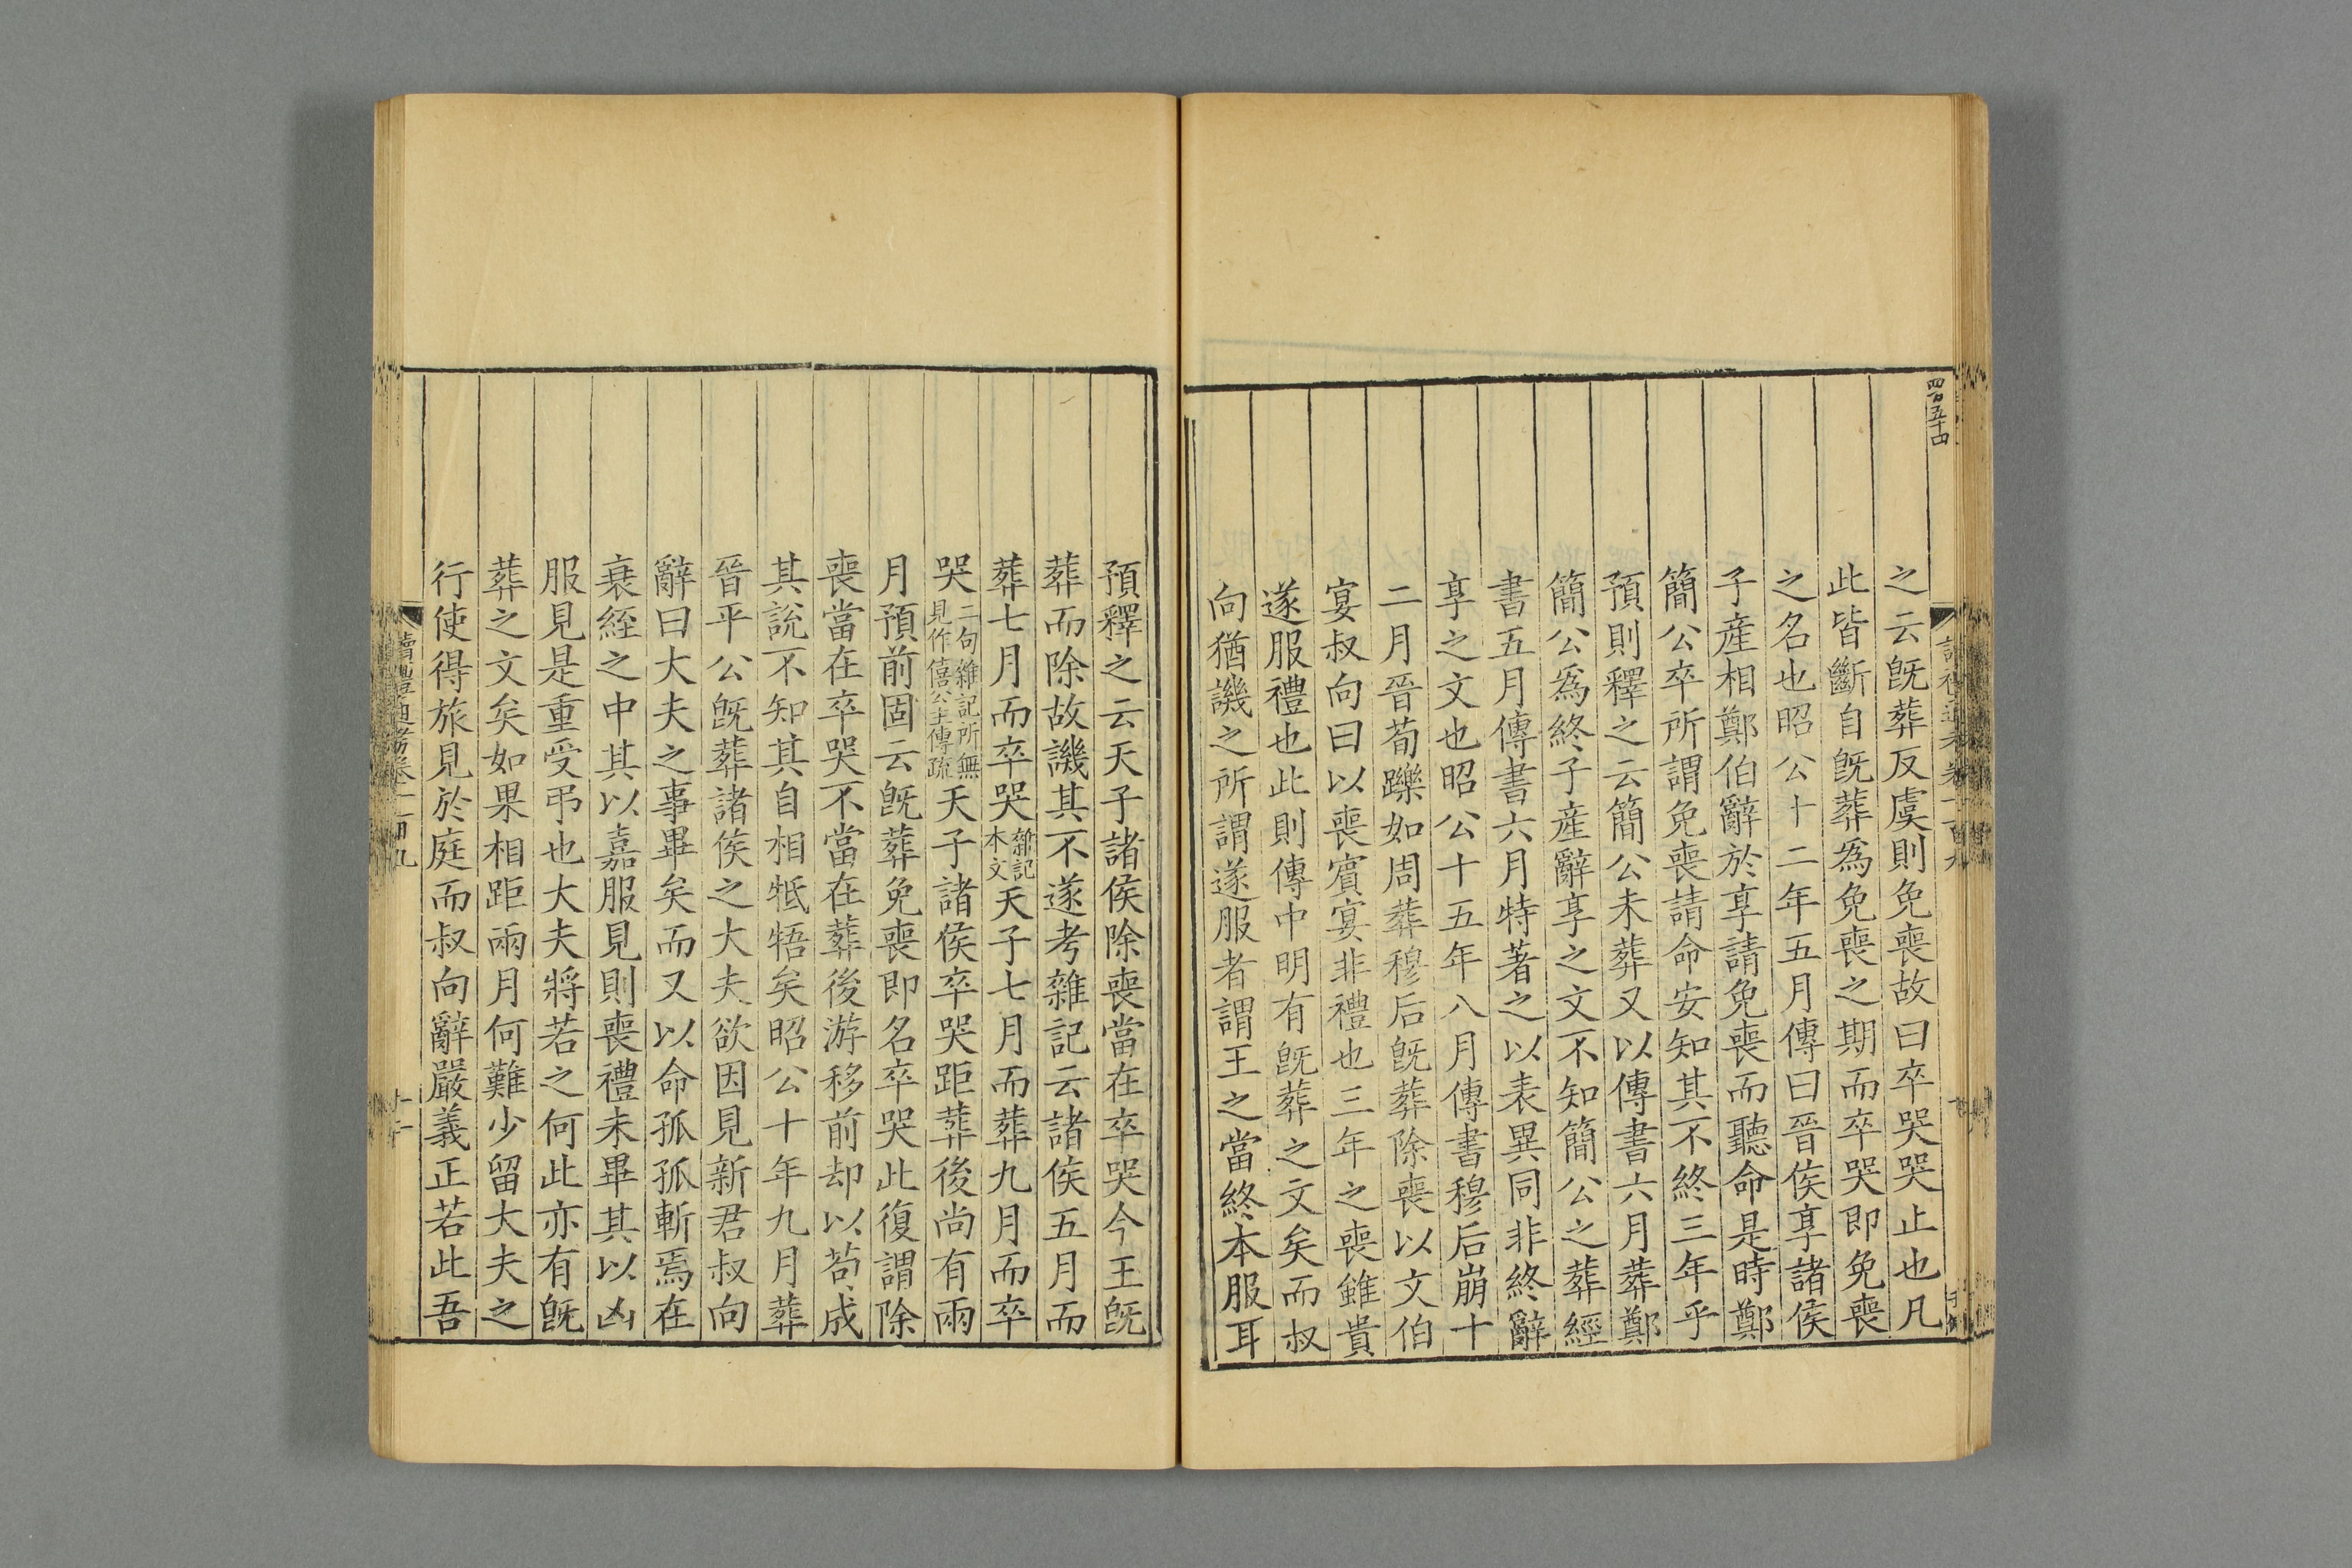 四百五十四
之云旣葬反虞則免喪故曰卒哭哭止也凡
此皆斷自旣葬爲免喪之期而卒哭即免喪
之名也昭公十二年五月傳曰晉侯享諸侯
子產相鄭伯辭於享請免喪而聽命是時鄭
簡公卒所謂免喪請命安知其不終三年乎
預則釋之云簡公未葬又以傳書六月葬鄭
簡公爲終子產辭享之文不知簡公之葬經
書五月傳書六月特著之以表異同非終辭
享之文也昭公十五年八月傳書穆后崩十
二月晉荀躒如周葬穆后旣葬除喪以文伯
宴叔向曰以喪賓宴非禮也三年之喪雖貴
遂服禮也此則傳中明有旣葬之文矣而叔
向猶譏之所謂遂服者謂王之當終本服耳
預釋之云天子諸侯除喪當在卒哭今王旣
葬而除故譏其不遂考雜記云諸侯五月而
葬七月而卒哭雜記本文天子七月而葬九月而卒
哭二句雜記所無見作僖公主傳疏天子諸侯卒哭距葬後尚有兩
月預前固云旣葬免喪即名卒哭此復謂除
喪當在卒哭不當在葬後游移前却以苟成
其說不知其自相牴牾矣昭公十年九月葬
晉平公旣葬諸侯之大夫欲因見新君叔向
辭曰大夫之事畢矣而又以命孤孤斬焉在
衰絰之中其以嘉服見則喪禮未畢其以凶
服見是重受弔也大夫將若之何此亦有旣
葬之文矣如果相距兩月何難少留大夫之
行使得旅見於庭而叔向辭嚴義正若此吾
讀禮通考卷一百九
十二